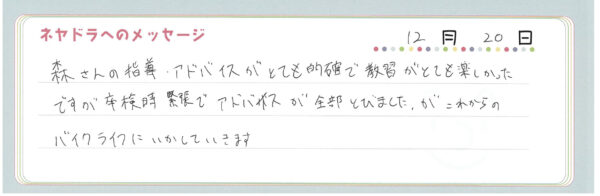 ネヤドラへのメッセージ
12月 20日
森さんの指導・アドバイスがとても的確で教習がとても楽しかった
ですが卒検時緊張でアドバイスが全部とびました。がこれからの
バイクライフにいかしていきます